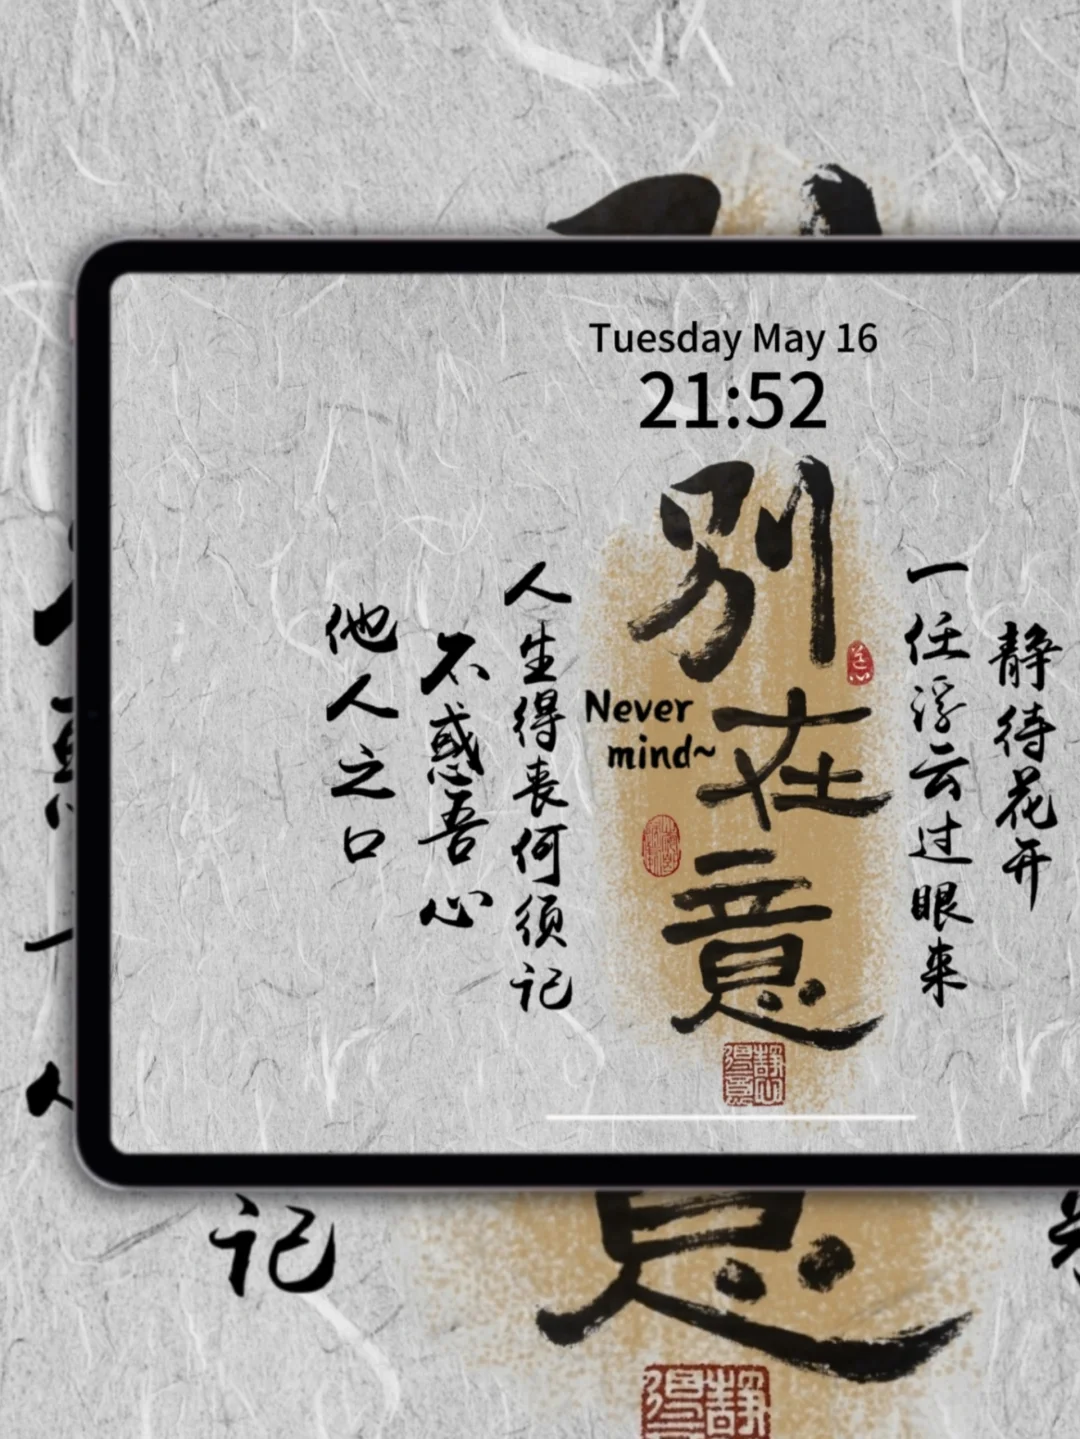 Tuesday May 16
21:52
别在意
Never
mind~
静待花开
一任浮云过眼来
人生得丧何须记
不惑吾心
他人之口
记